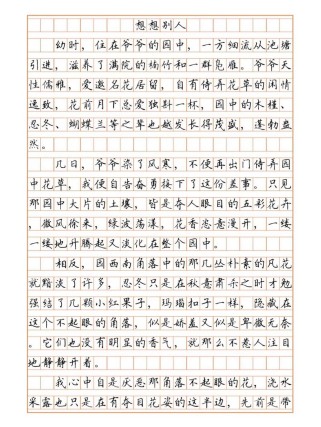 想想别人
幼时，住在爷爷的园中，一方细流从池塘
引进，滋养了满院的绮竹和一群凫雁。爷爷天
性儒雅，爱邀名花居留，自有侍弄花草的闲情
逸致，花前月下总爱独斟一杯，园中的木槿、
忍冬、蝴蝶兰等之辈也越发长得茂盛，蓬勃盎
然。
几日，爷爷染了风寒，不便再出门侍弄园
中花草，我便自告奋勇接下了这份差事。只见
那园中大片的土壤，皆是夺人眼目的五彩花卉
，微风徐来，绿波荡漾，花香恣意漫开，一缕
一缕地升腾起又淡化在整个园中。
相反，园西南角落中的那几丛朴素的凡花
就黯淡了许多，忍冬只是在秋意肃杀之时才勉
强结了几颗小红果子，玛瑙扣子一样，隐藏在
这个不起眼的角落，似是娇羞又似是卑微无奈
。它们也没有明显的香气，就那么不惹人注目
地静静开着。
我心中自是厌恶那角落不起眼的花，浇水
采露也只是在有夺目花姿的这半边，先前是带